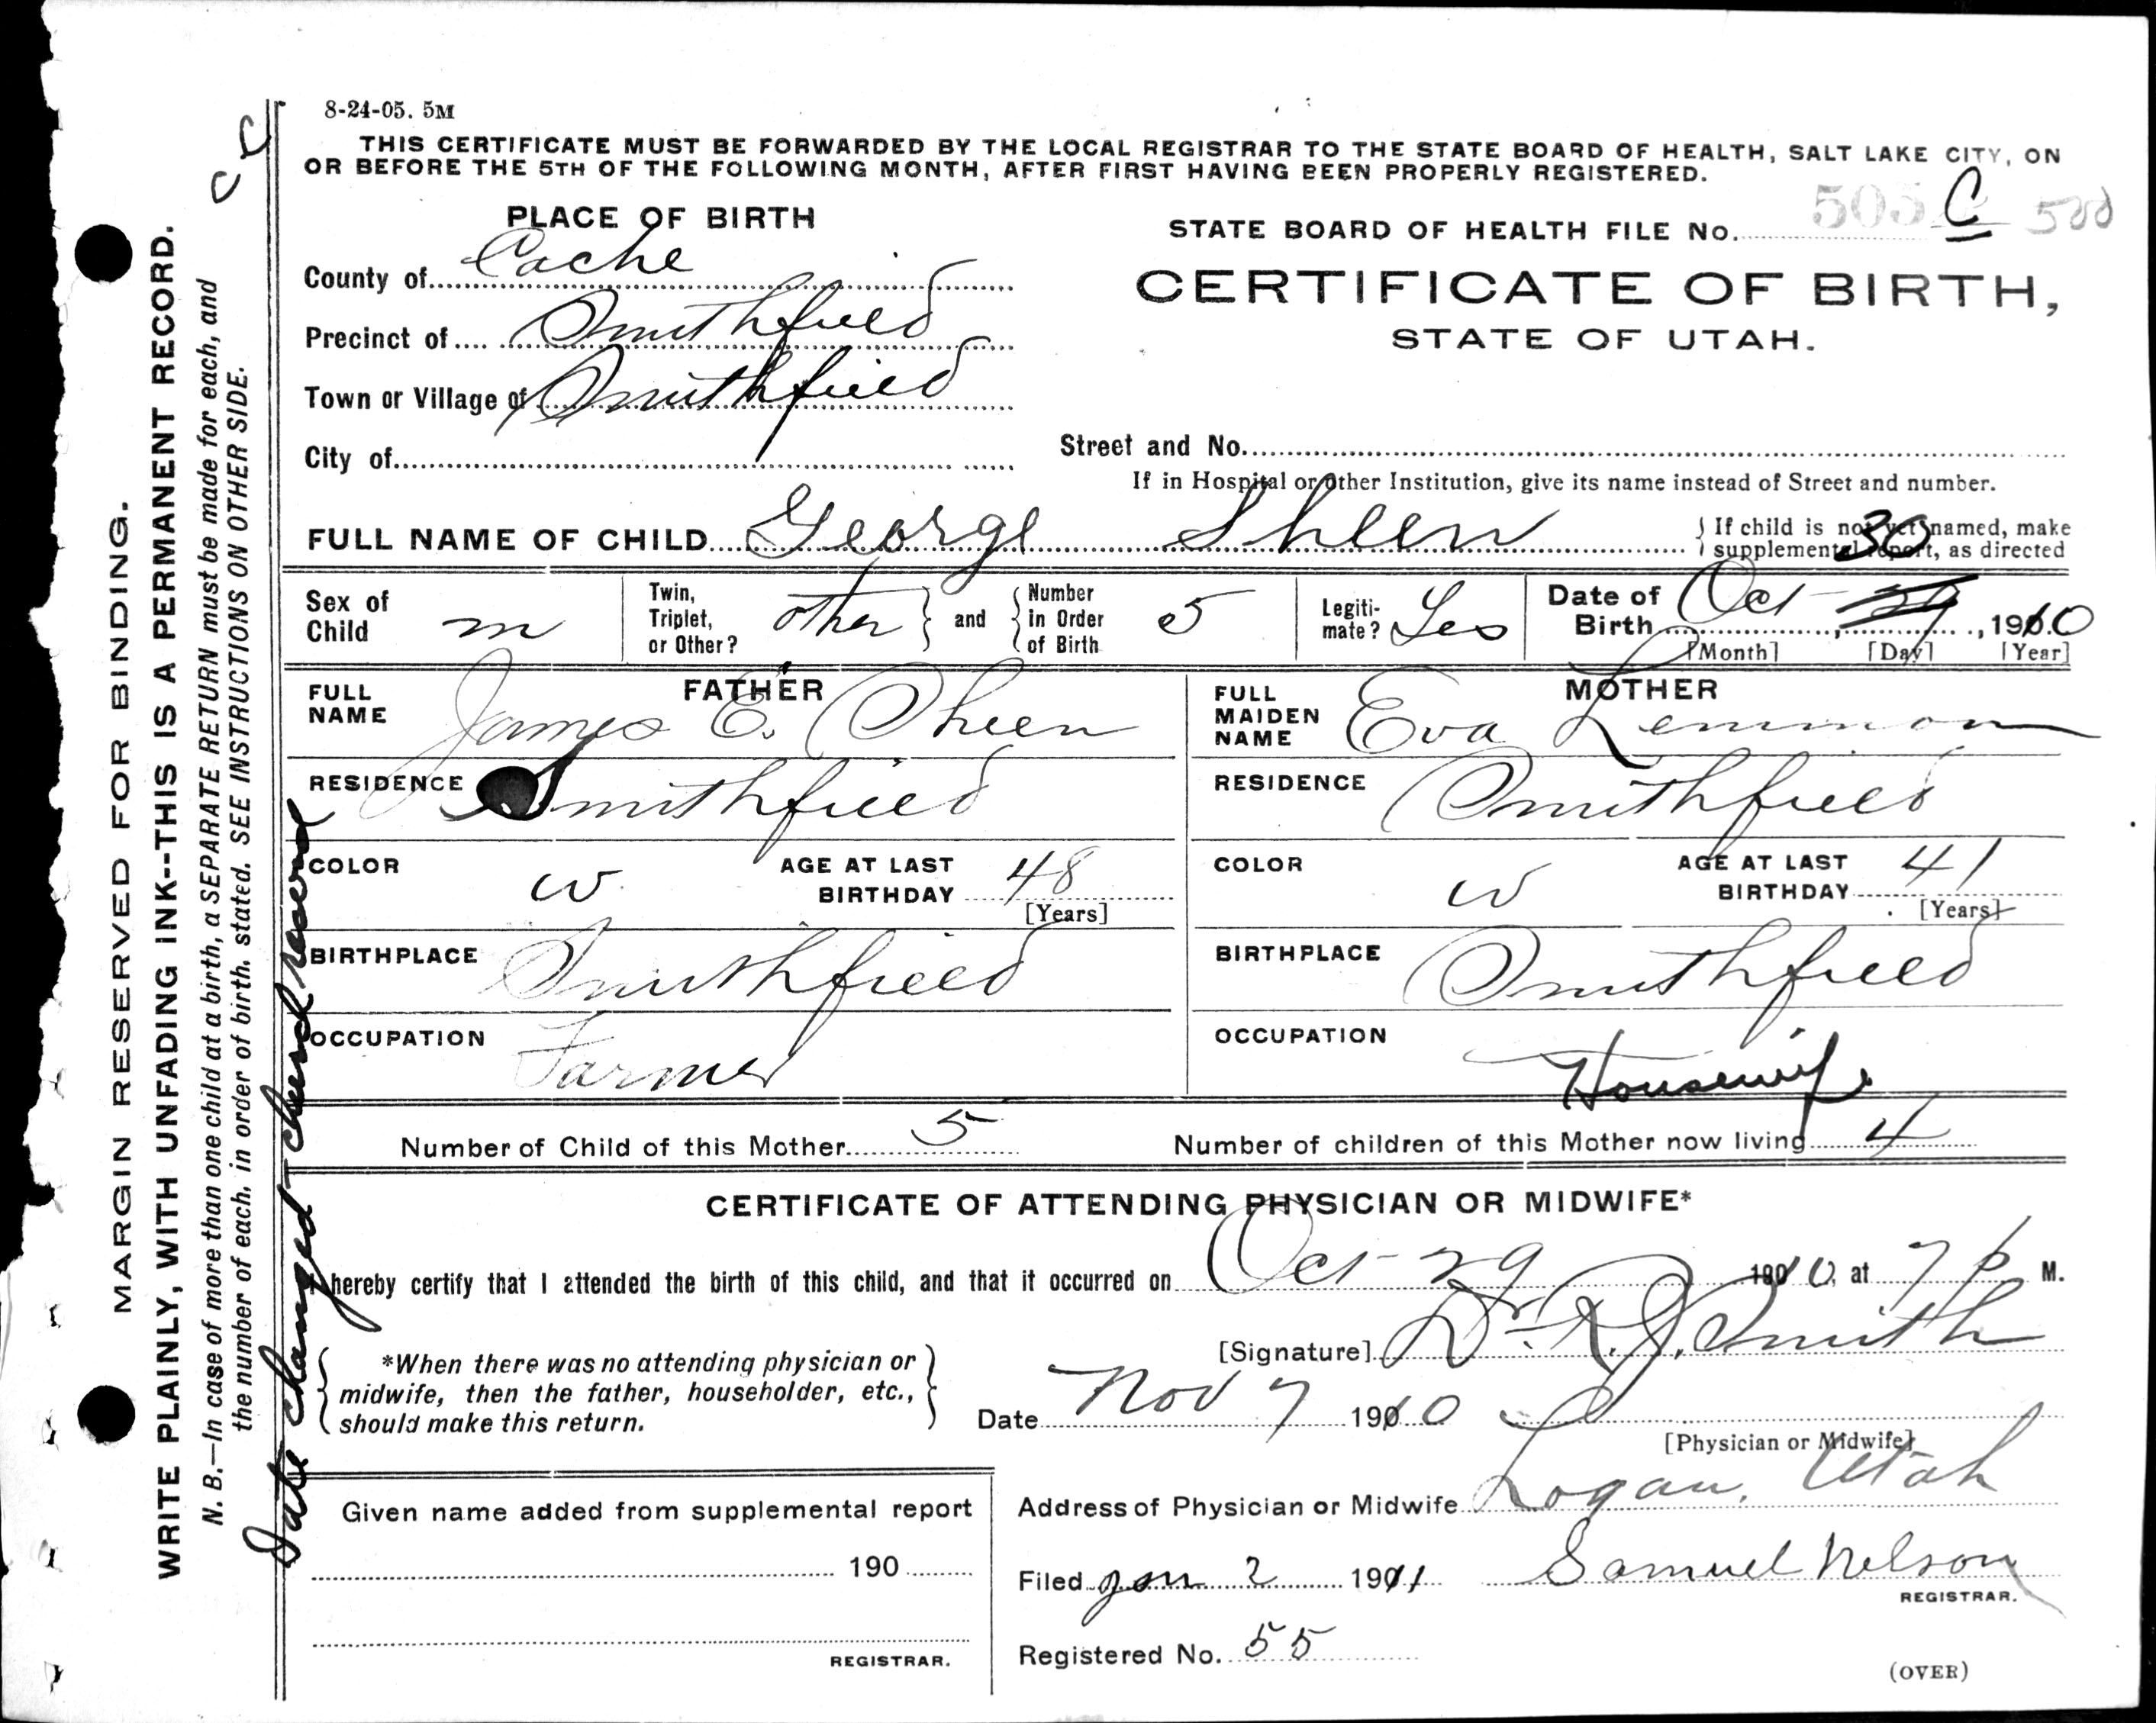 8-24-05. 5M
THIS CERTIFICATE MUST BE FORWARDED BY THE LOCAL REGISTRAR TO THE STATE BOARD OF HEALTH, SALT LAKE CITY, ON
OR BEFORE THE 5TH OF THE FOLLOWING MONTH, AFTER FIRST HAVING BEEN PROPERLY REGISTERED.
PLACE OF BIRTH
County of Cache
Precinct of Smithfield
Town or Village of Smithfield
City of
STATE BOARD OF HEALTH FILE No. C
CERTIFICATE OF BIRTH,
STATE OF UTAH.
Street and No.
If in Hospital or other Institution, give its name instead of Street and number.
FULL NAME OF CHILD George Sheen
If child is not yet named, make
supplemental report, as directed
Sex of Child m
Twin, Triplet, or Other? other and Number in Order of Birth 5
Legiti-mate? Yes
Date of Birth Oct 30 29, 1910
[Month] [Day] [Year]
FATHER
FULL NAME James E. Sheen
RESIDENCE Smithfield
COLOR w AGE AT LAST BIRTHDAY 48
[Years]
BIRTHPLACE Smithfield
OCCUPATION Farmer
MOTHER
FULL MAIDEN NAME Eva Lemmon
RESIDENCE Smithfield
COLOR w AGE AT LAST BIRTHDAY 41
[Years]
BIRTHPLACE Smithfield
OCCUPATION Housewife
Number of Child of this Mother 5 Number of children of this Mother now living 4
CERTIFICATE OF ATTENDING PHYSICIAN OR MIDWIFE*
I hereby certify that I attended the birth of this child, and that it occurred on Oct 29 1910, at 7 p M.
*When there was no attending physician or
midwife, then the father, householder, etc.,
should make this return.
[Signature] Dr. R. J. Smith
Date Nov 7 1910
[Physician or Midwife]
Given name added from supplemental report
190
REGISTRAR.
Address of Physician or Midwife Logan, Utah
Filed Jan 2 1911 Samuel Nelson
REGISTRAR.
Registered No. 55
(OVER)
MARGIN RESERVED FOR BINDING.
WRITE PLAINLY, WITH UNFADING INK--THIS IS A PERMANENT RECORD.
N. B.—In case of more than one child at a birth, a SEPARATE RETURN must be made for each, and
the number of each, in order of birth, stated. SEE INSTRUCTIONS ON OTHER SIDE.
C C
Date changed - church record